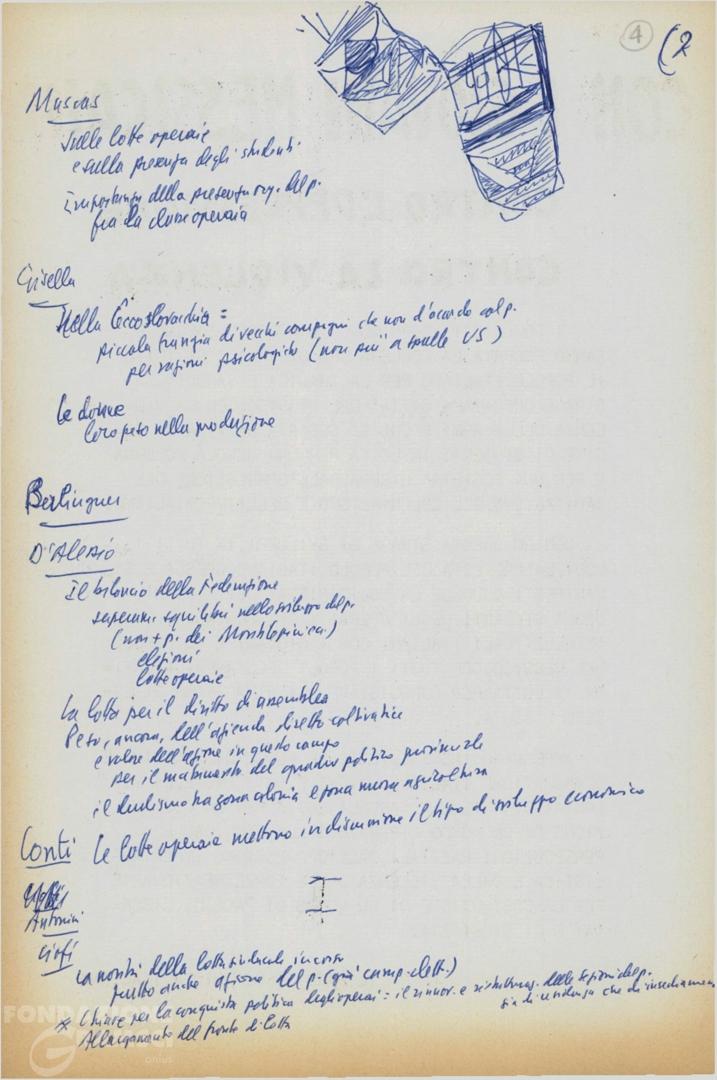 4
(2
Muscas
sulle lotte operaie
e sulla presenza degli studenti
importanza della presenza org. del p.
fra la classe operaia
Gisella
Nella Cecoslovacchia =
piccola frangia di vecchi compagni che non d'accordo col p.
per ragioni psicologiche (non più a spalle US)
Le donne
loro peso nella produzione
Berlinguer
D'Alessio
Il bilancio della Federazione
superare squilibri nello sviluppo del p.
(non + p. dei
elezioni
lotte operaie
La lotta per il diritto di assemblea
Peso, ancora, dell'azienda diretto-coltivatrice
e valore dell'azione in questo campo
per il mutamento del quadro politico provinciale
il dualismo tra zona colonica e zona nuova agricoltura
Conti Le lotte operaie mettono in discussione il tipo di sviluppo economico
Antonini
Ciofi
La novità della lotta sindacale in corso
frutto anche azione del p. (già camp. elett.)
* Chiave per la conquista politica degli operai = il rinnov. e ristrutturaz. delle sezioni del p.
sia di residenza che di insediamento
Allargamento del fronte di lotta
FONDAZIONE
Gramsci
onlus